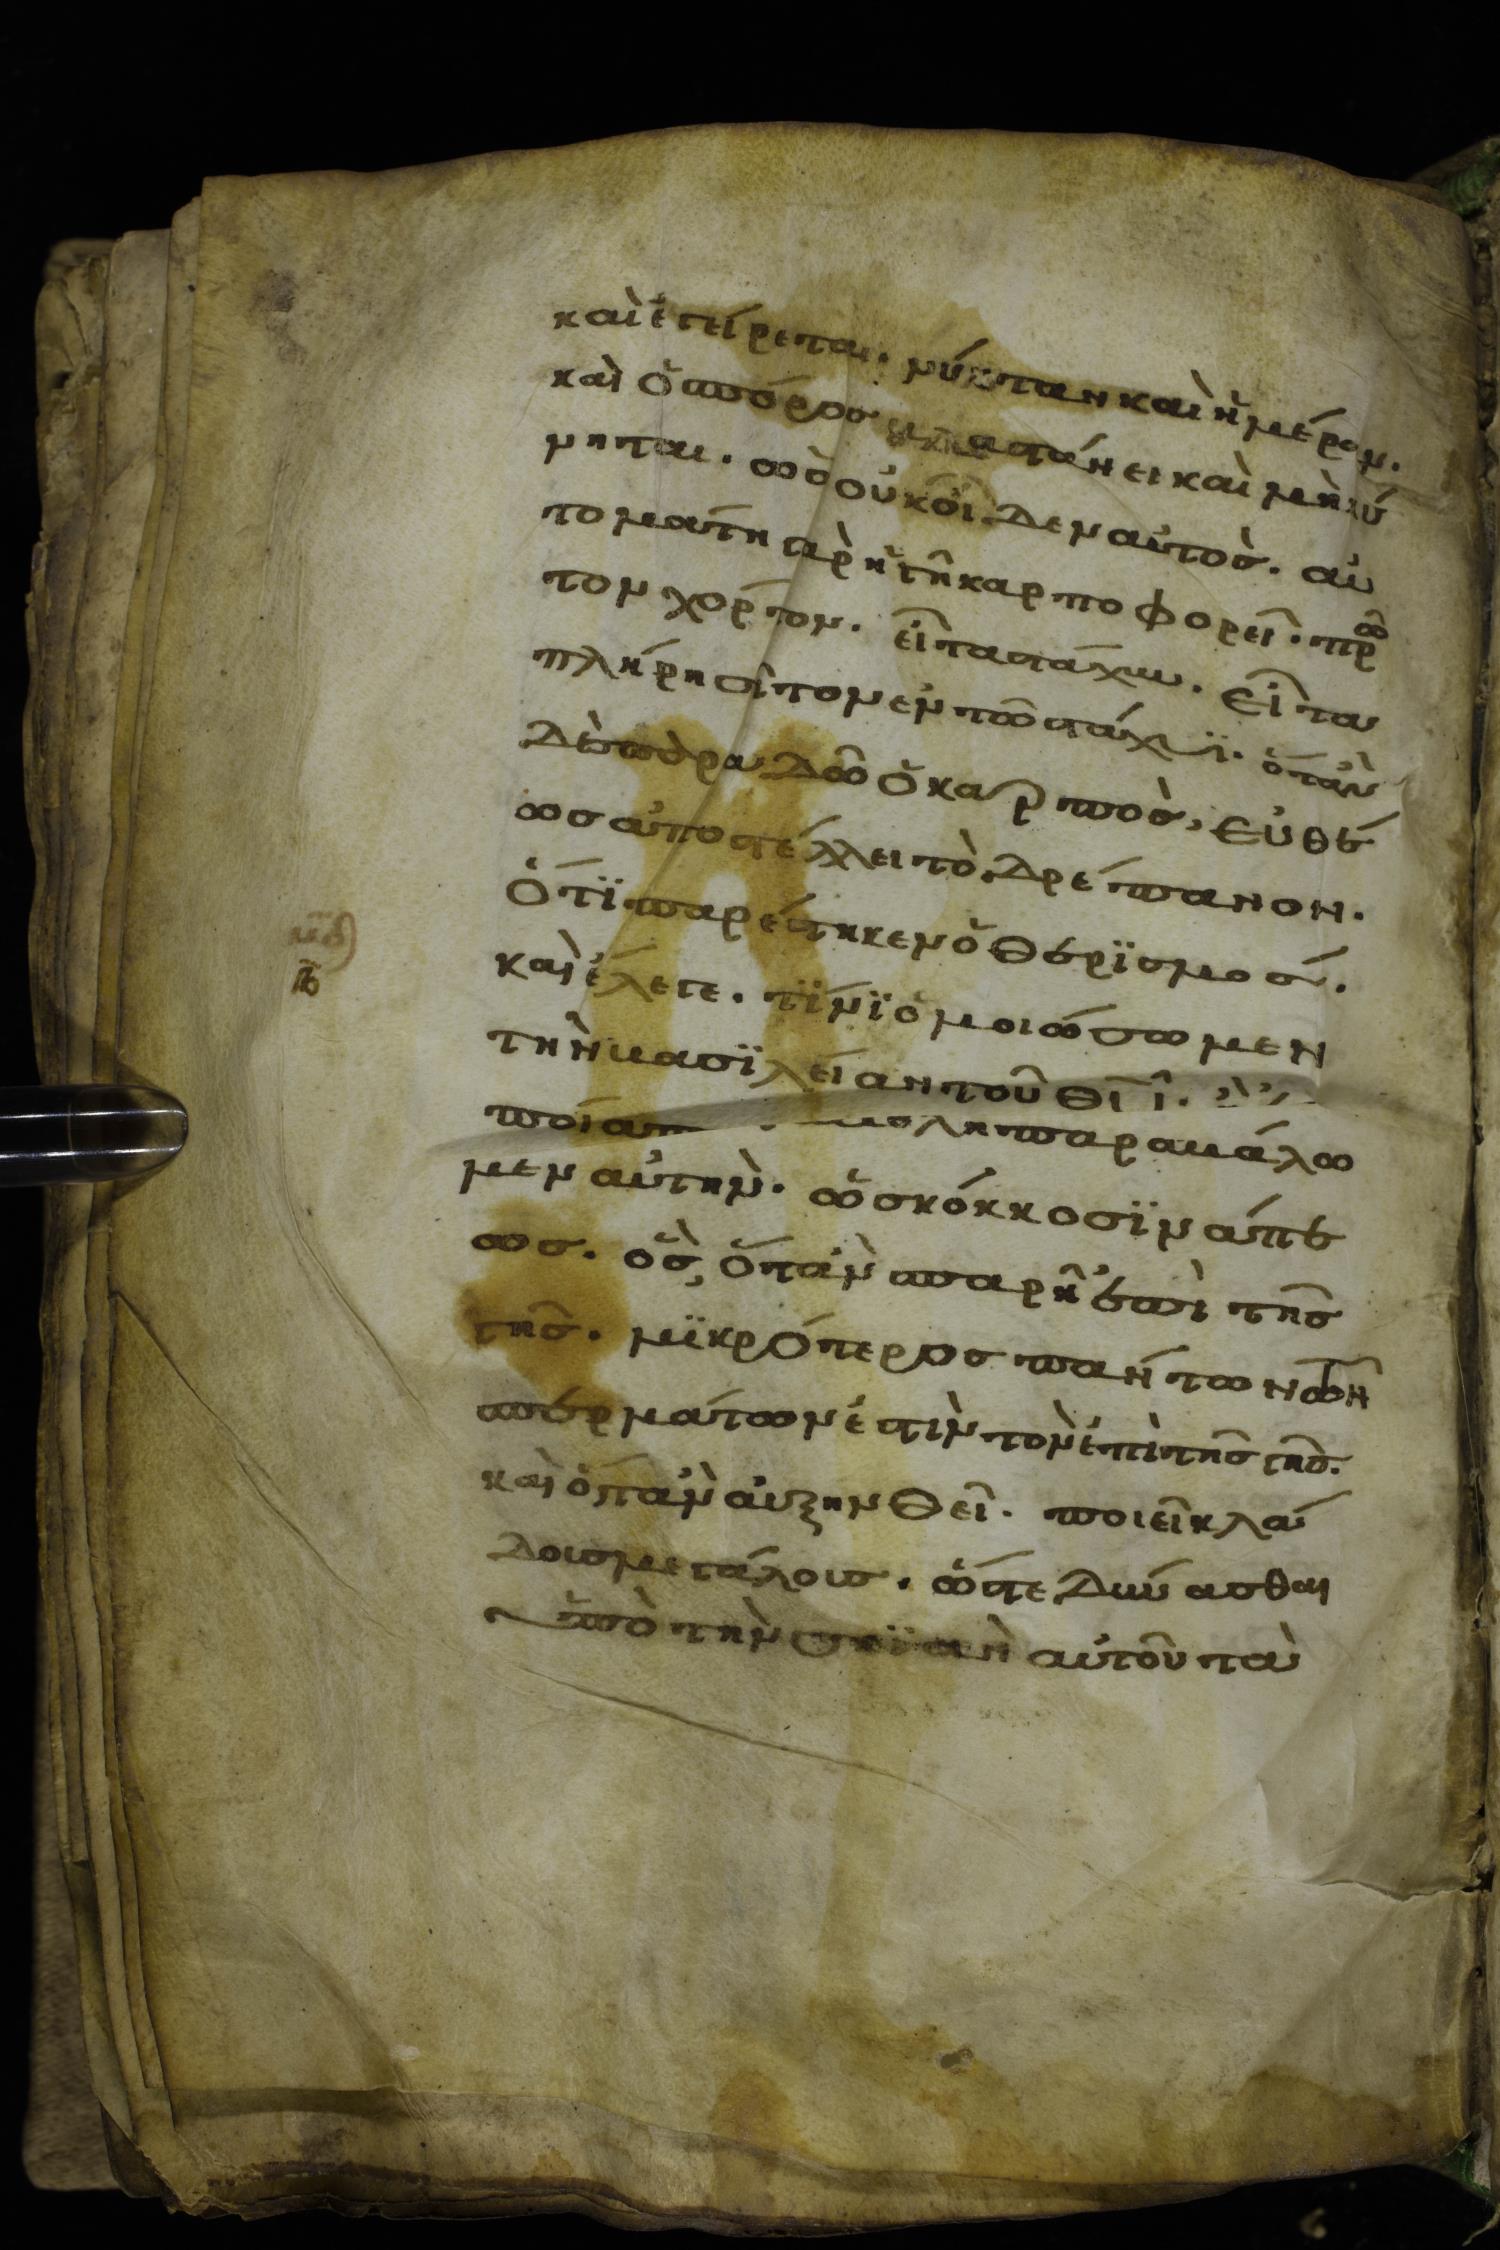 καὶ ἐγείρεται. νύκταν καὶ ἡμέραν.
καὶ ὁ σπόρος βλαστάνει καὶ μηκύ
νηται. ὡς οὐκ οἶδεν αὐτὸς. αὐ
τομάτη γὰρ ἡ γῆ καρποφορεῖ. πρω
τον χόρτον. εἶτα στάχυ. εἶτα
πλήρη σῖτον ἐν τῶ στάχυϊ. ὁτὰν
δὲ παρα δῶ ὁ καρπὸς, εὐθέ
ως ἀποστέλλει τὸ δρέπανον.
ὅτϊ παρέστηκεν ὁ θερϊσμοσ.
καὶ ἔλεγε. τίνϊ ὁμοιώσωμεν
τὴν βασϊλείαν τοῦ θῦ.
ποία παραβάλω
μεν αὐτὴν. ὡς κόκκοσϊνάπε
ως. ὃς, ὅτὰν σπαρῆ ἐπὶ τῆς
γῆς. μϊκρότερος πάντων τῶν
σπερμάτων ἐστὶν τὸν ἐπὶ τῆς γῆς.
καὶ ὅταν αὐξηνθεῖ. ποιεῖ κλά
δουσ μεγάλουσ. ὥστε δύνασθαι
ὑπὸ τὴν σκϊὰν αὐτοῦ τὰ